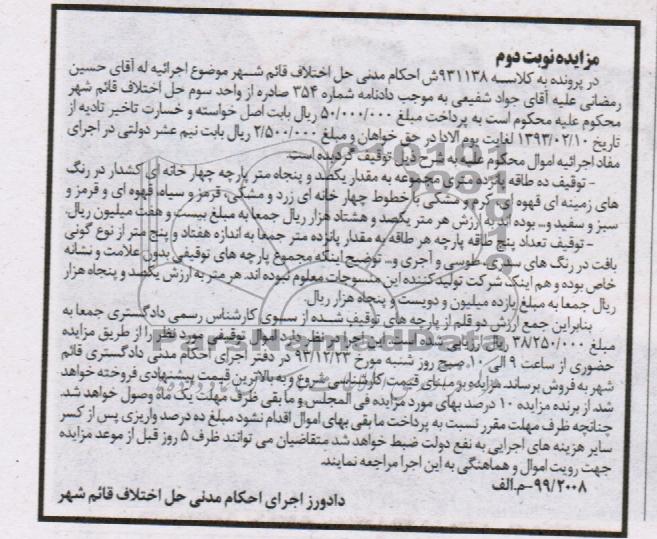 مزایده نوبت دوم
در پرونده به کلاسه ۹۳۱۱۳۸ش احکام مدنی حل اختلاف قائم شهر موضوع اجرائیه له آقای حسین
رمضانی علیه آقای جواد شفیعی به موجب دادنامه شماره ۳۵۴ صادره از واحد سوم حل اختلاف قائم شهر
محکوم علیه محکوم است به پرداخت مبلغ ۵۰/۰۰۰/۰۰۰ ریال بابت اصل خواسته و خسارت تاخیر تادیه از
تاریخ ۱۳۹۳/۰۲/۱۰ لغایت یوم الادا در حق خواهان و مبلغ ۲/۵۰۰/۰۰۰ ریال بابت نیم عشر دولتی در اجرای
مفاد اجرائیه اموال محکوم علیه به شرح ذیل توقیف گردیده است.
- توقیف ده طاقه پانزده متری مجموعه به مقدار یکصد و پنجاه متر پارچه چهار خانه ای کشدار در رنگ
های زمینه ای قهوه ای، کرم و مشکی با خطوط چهار خانه ای زرد و مشکی، قرمز و سیاه، قهوه ای و قرمز و
سبز و سفید و... بوده اند به ارزش هر متر یکصد و هشتاد هزار ریال جمعا به مبلغ بیست و هفت میلیون ریال.
- توقیف تعداد پنج طاقه پارچه هر طاقه به مقدار پانزده متر جمعا به اندازه هفتاد و پنج متر از نوع گونی
بافت در رنگ های سدری، طوسی و آجری و... توضیح اینکه مجموع پارچه های توقیفی بدون علامت و نشانه
خاص بوده و هم اینک شرکت تولید کننده این منسوجات معلوم نبوده اند. هر متر به ارزش یکصد و پنجاه هزار
ریال جمعا به مبلغ یازده میلیون و دویست و پنجاه هزار ریال.
بنابراین جمع ارزش دو قلم از پارچه های توقیف شده از سوی کارشناس رسمی دادگستری جمعا به
مبلغ ۳۸/۲۵۰/۰۰۰ ریال ارزیابی شده است. این اجرا در نظر دارد اموال توقیفی مورد نظر را از طریق مزایده
حضوری از ساعت ۹ الی ۱۰ صبح روز شنبه مورخ ۹۳/۱۲/۲۳ در دفتر اجرای احکام مدنی دادگستری قائم
شهر به فروش برساند. مزایده بر مبنای قیمت کارشناسی شروع و به بالاترین قیمت پیشنهادی فروخته خواهد
شد. از برنده مزایده ۱۰ درصد بهای مورد مزایده فی المجلس و ما بقی ظرف مهلت یک ماه وصول خواهد شد.
چنانچه ظرف مهلت مقرر نسبت به پرداخت ما بقی بهای اموال اقدام نشود مبلغ ده درصد واریزی پس از کسر
سایر هزینه های اجرایی به نفع دولت ضبط خواهد شد متقاضیان می توانند ظرف ۵ روز قبل از موعد مزایده
جهت رویت اموال و هماهنگی به این اجرا مراجعه نمایند.
۹۹/۲۰۰۸-م.الف
دادورز اجرای احکام مدنی حل اختلاف قائم شهر
ParsNamadData